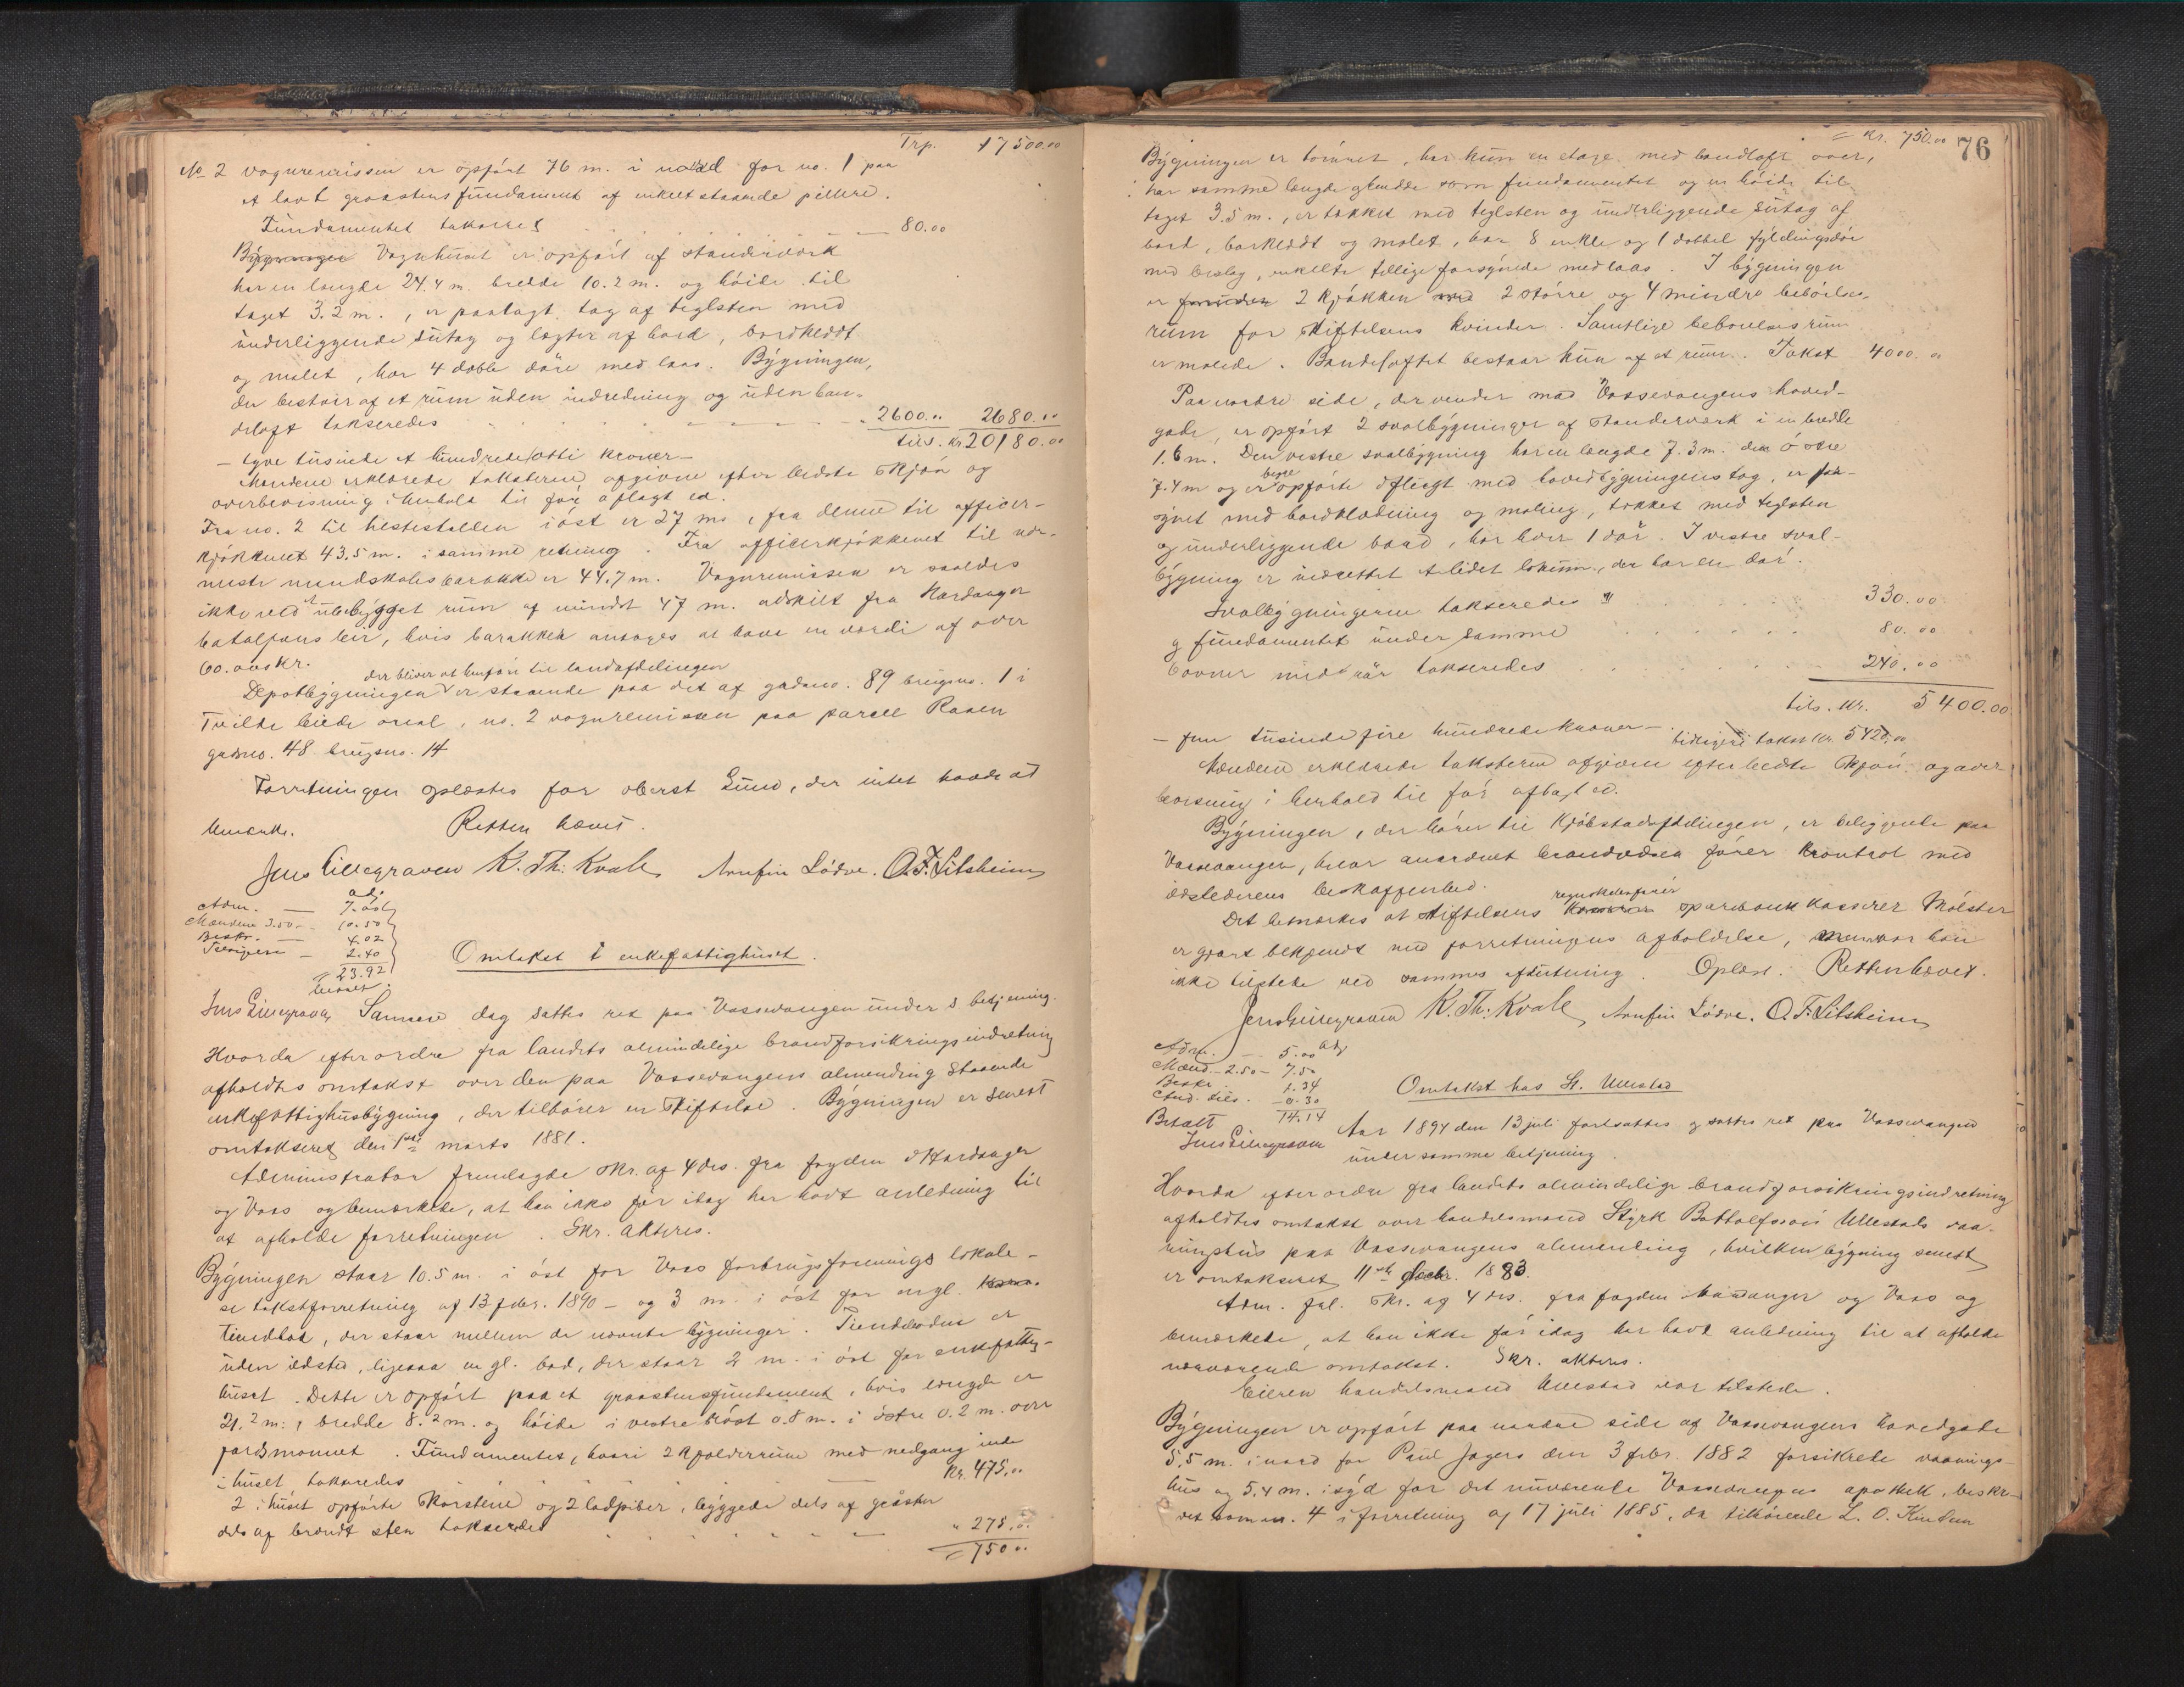 Trp. 17500.00
No 2 vognremissen er opført 76 m. i nord for no. 1 paa
et lavt graastensfundament af enkeltstaaende pillere.
Fundamentet takseres 80.00
Bygningen Vognhuset er opført af standerværk
har en længde 24.4 m. bredde 10.2 m. og høide til
taget 3.2 m., er paalagt tag af teglsten med
underliggende sutag og lægter af bord, bordklædt
og malet, har 4 doble døre med laas. Bygningen,
der bestaar af et rum uden indredning og uden ban-
deloft takseredes 2600.00 2680.00
tils. kr 20180.00
- tyve tusinde et hundrede otti kroner -
Mændene erklærede taksterne afgivne efter bedste skjøn og
overbevisning i henhold til før aflagt ed.
Fra no. 2 til hestestallen i øst er 27 m., fra denne til officer-
kjøkkenet 43.5 m. i samme retning. Fra officerkjøkkenet til nær-
meste mandskabsbarakke er 44.7 m. Vognremissen er saaledes
ikke ved et ubebygget rum af mindst 47 m. adskilt fra Hardanger
bataljons leir, hvis barakker antages at have en værdi af over
60.000 kr.
der bliver at henføre til landafdelingen
Depotbygningen er staaende paa det af gadsno. 89 brugsno. 1 i
Tvilde leiede areal, no. 2 vognremissen paa parcel Raaen
gadsno. 48 brugsno. 14
Forretningen oplæstes for oberst Lund, der intet havde at
bemærke. Retten hævet.
Jens Lillegraven K. Th. Kvale Arnfin Lødve. O. T. Litsheim
adj
Adm. — 7.00
Mændene 3.50 — 10.50
Beskr. — 4.02
Tilsigelse — 2.40
23.92
betalt.
Jens Lillegraven
Omtakst i enkefattighuset.
Samme dag sattes ret paa Vossevangen under s betjening.
Hvorda efter ordre fra landets almindelige brandforsikringsindretning
afholdtes omtakst over den paa Vossevangens almending staaende
enkefattighusbygning, der tilhører en stiftelse. Bygningen er senest
omtakseret den 1ste marts 1881.
Administrator fremlagde skr. af 4 ds. fra fogden i Hardanger
og Voss og bemærkede, at han ikke før idag har havt anledning til
at afholde forretningen. Skr. akteres.
Bygningen staar 10.5 m. i øst for Voss forbrugsforenings lokale -
se takstforretning af 13 febr. 1890 - og 3 m. i øst for en gl.
tiendebod, der staar mellem de nævnte bygninger. Tiendeboden er
uden ildsted, ligesaa en gl. bod, der staar 2 m. i øst for enkefattig-
huset. Dette er opført paa et graastensfundament, hvis længde er
21.2 m., bredde 8.2 m. og høide i vestre røst 0.8 m. i østre 0.2 m. over
jordsmonnet. Fundamentet, hvori 2 kjælderrum med nedgang inde
i huset takseredes kr. 475.00
2 i huset opførte skorstene og 2 ladpiber, byggede dels af graasten
dels af brændt sten takseredes " 275.00
750.00
76
kr. 750.00
Bygningen er tømret, har kun en etage med bandloft over,
har samme længde og bredde som fundamentet og en høide til
taget 3.5 m., er tækket med teglsten og underliggende sutag af
bord, bordklædt og malet, har 8 enkle og 1 dobbel fyldingsdør
med beslag, enkelte tillige forsynede med laas. I bygningen
er foruden 2 kjøkken med 2 større og 4 mindre beboelses-
rum for stiftelsens kvinder. Samtlige beboelsesrum
er malede. Bandeloftet bestaar kun af et rum. Takst 4000.00
Paa nordre side, der vender mod Vossevangens hoved-
gade, er opført 2 svalbygninger af standerværk i en bredde
1.6 m. Den vestre svalbygning har en længde 7.3 m. den østre
7.4 m og er begge opførte i flugt med hovedbygningens tag, er for-
synet med bordklædning og maling, tækket med teglsten
og underliggende bord, har hver 1 dør. I vestre sval-
bygning er indrettet et lidet lokum, der har en dør.
Svalbygningerne takseredes 330.00
og fundamentet under samme 80.00
6 ovner med rør takseredes 240.00
tils. kr. 5400.00
- fem tusinde fire hundrede kroner -
tidligere takst kr. 5420.00
Mændene erklærede taksterne afgivne efter bedste skjøn og over-
bevisning i henhold til før aflagt ed.
Bygningen, der hører til kjøbstadafdelingen, er beliggende paa
Vossevangen, hvor anordnet brandvæsen fører kontrol med
ildstedernes beskaffenhed.
regnskabsfører
Det bemærkes at stiftelsens sparebankkasserer Mølster
er gjort bekjendt med forretningens afholdelse, men var han
ikke tilstede ved sammes afslutning. Oplæst. Retten hævet.
Jens Lillegraven K. Th. Kvale Arnfin Lødve. O. T. Litsheim
adj
Adm. — 5.00
Mænd. — 2.50 — 7.50
Beskr. 1.34
And. tils. 0.30
Betalt 14.14
Jens Lillegraven
Omtakst hos St. Ullestad
Aar 1894 den 13 juli fortsattes og sattes ret paa Vossevangen
under samme betjening.
Hvorda efter ordre fra landets almindelige brandforsikringsindretning
afholdtes omtakst over handelsmand Styrk Bottolfssøn Ullestads vaa-
ningshus paa Vossevangens almending, hvilken bygning senest
er omtakseret 11te decbr. 1883.
Adm. frl. skr. af 4 ds. fra fogden i Hardanger og Voss og
bemærkede, at han ikke før idag har havt anledning til at afholde
nærværende omtakst. Skr. akteres.
Eieren handelsmand Ullestad var tilstede.
Bygningen er opført paa nordre side af Vossevangens hovedgade
5.5 m. i nord for Paul Jagers den 3 febr. 1882 forsikrede vaanings-
hus og 5.4 m. i syd for det nuværende Vossevangens apothek, beskre-
vet som no. 4 i forretning af 17 juli 1885, da tilhørende L. O. Kindem